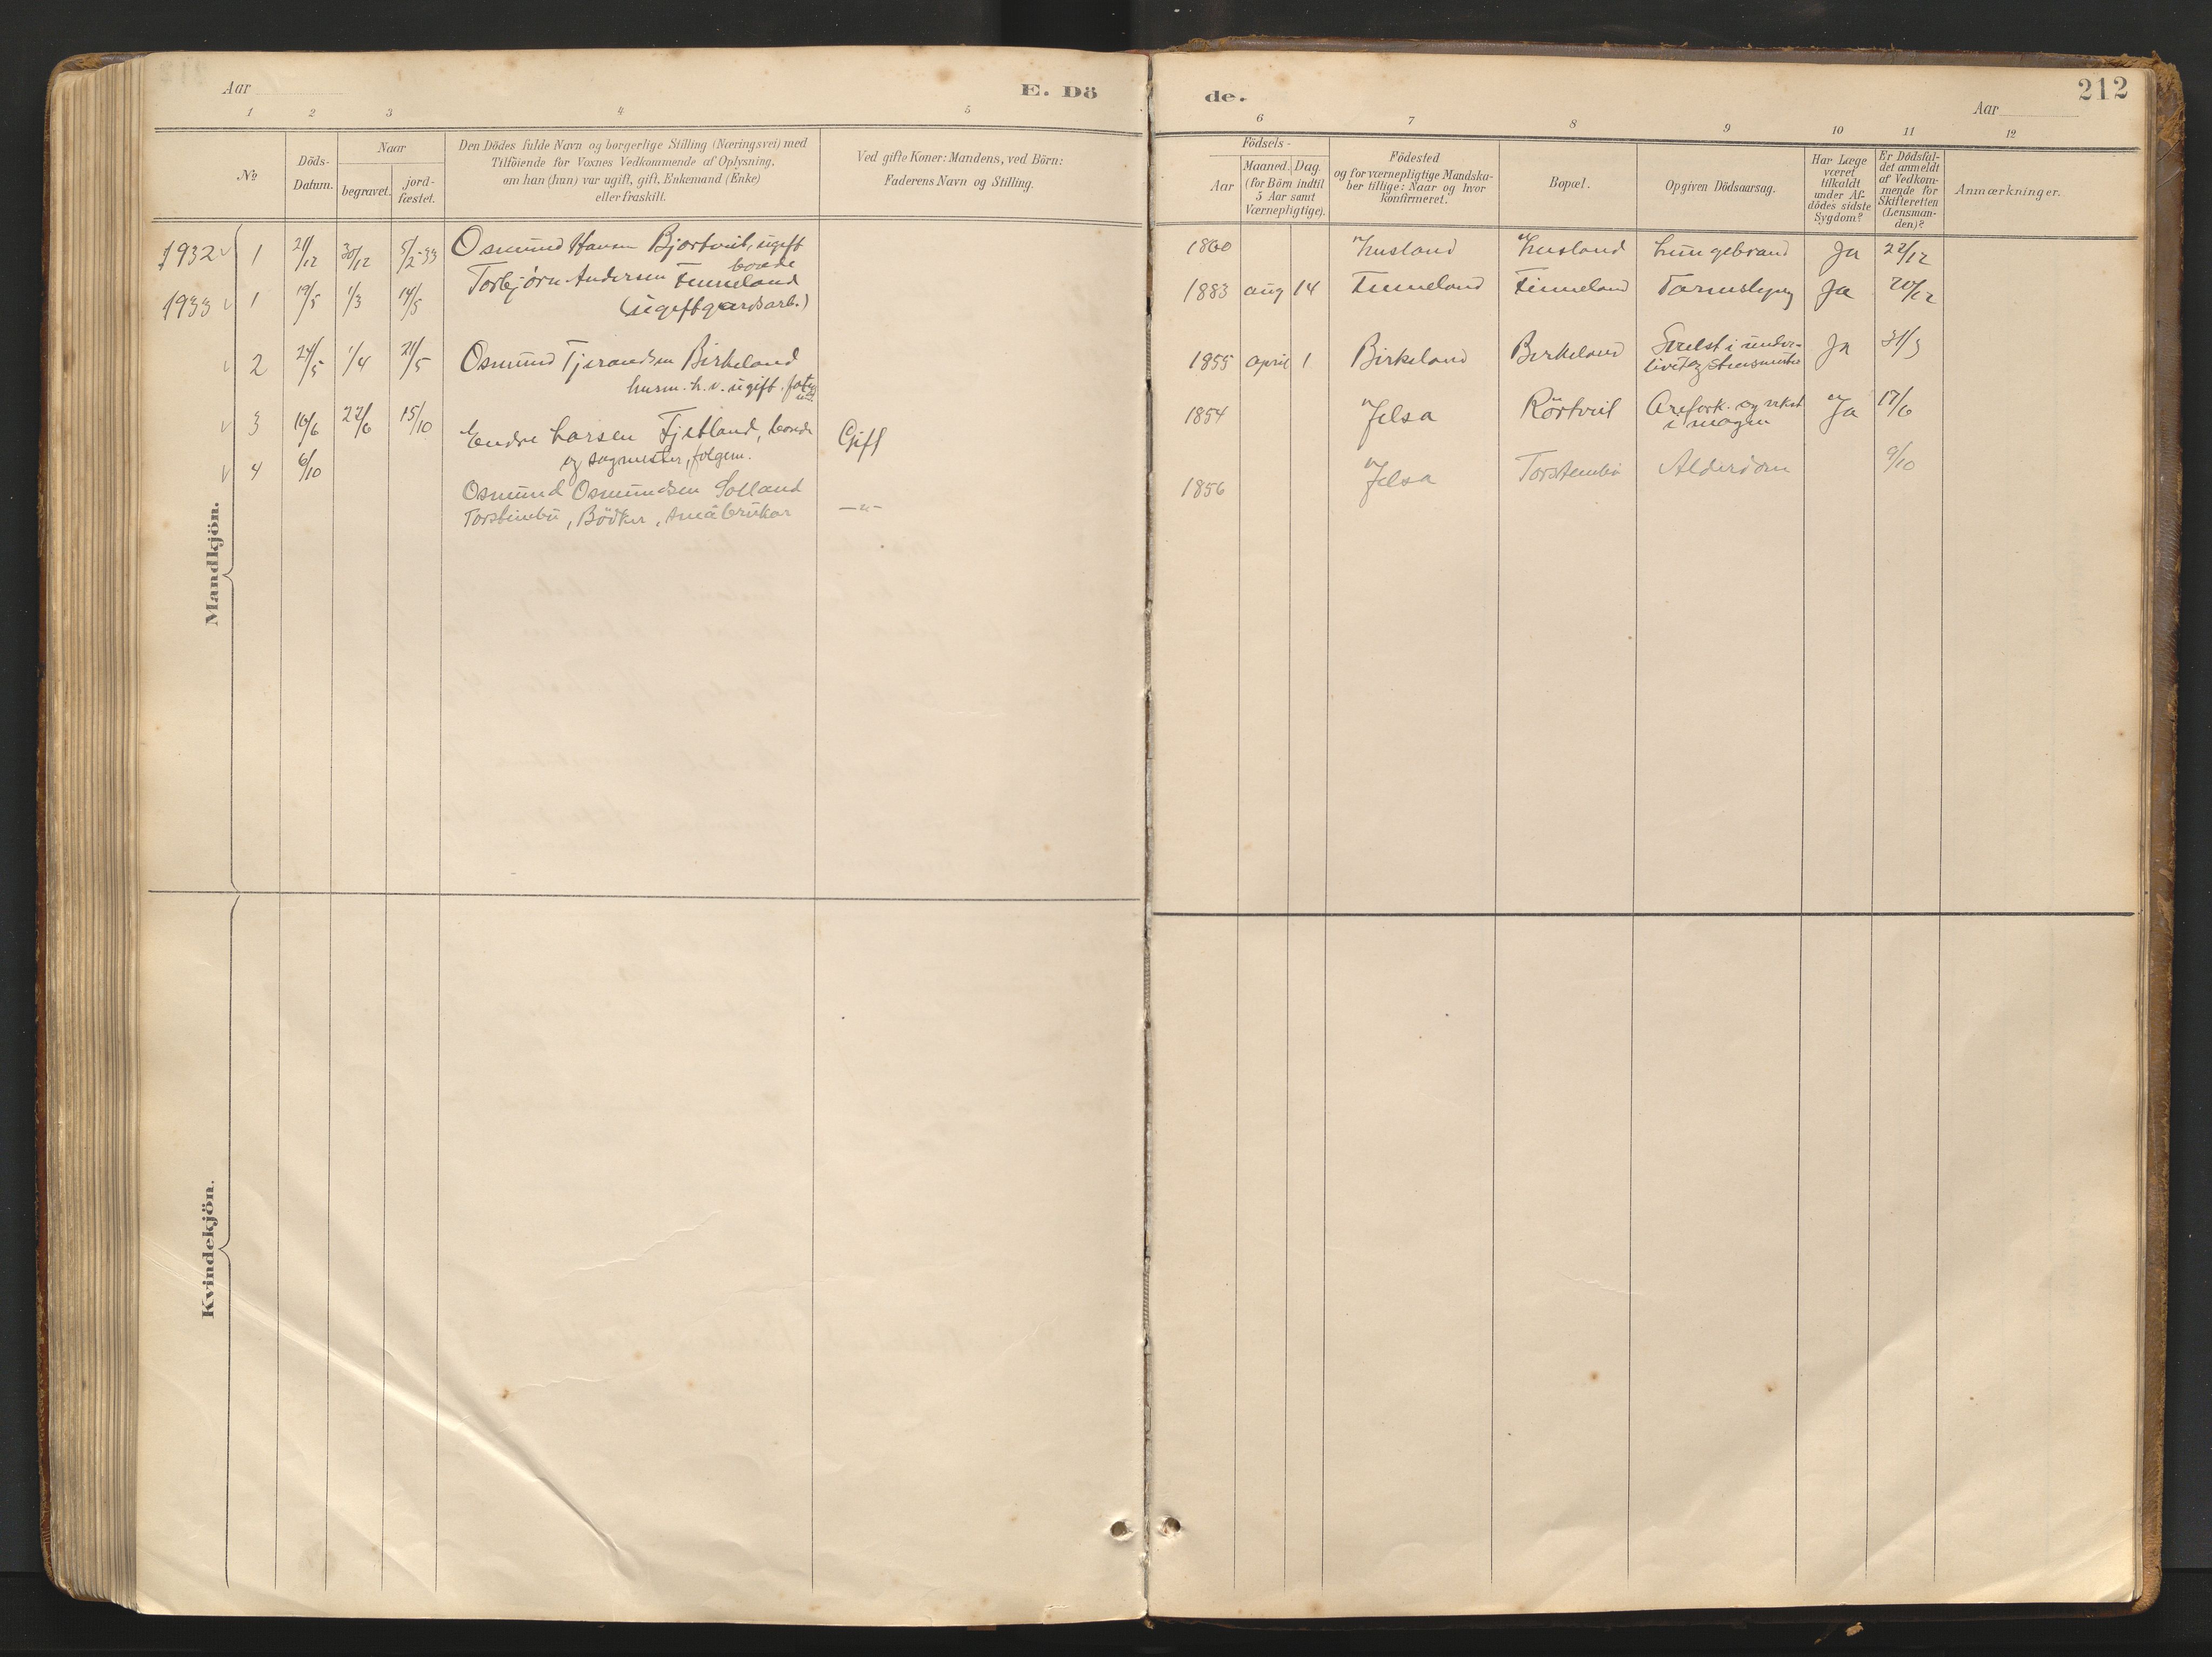 Aar
E. Dö
1 2 3 4 5
No
Döds-
Datum.
Naar
begravet.
jord-
fæstet.
Den Dödes fulde Navn og borgerlige Stilling (Næringsvei) med
Tilföiende for Voxnes Vedkommende af Oplysning,
om han (hun) var ugift, gift, Enkemand (Enke)
eller fraskilt.
Ved gifte Koner: Mandens, ved Börn:
Faderens Navn og Stilling.
1932 1 21/12 30/12 5/2-33 Osmund Hansen Bjortveit, ugift
bonde
1933 1 19/5 1/3 14/5 Torbjørn Andersen Finneland
(ugift gardsarb.)
2 24/5 1/4 21/5 Osmund Tjerandsen Birkeland
husm. h. v. ugift.
3 16/6 22/6 15/10 Endre Larsen Fjetland, bonde Gift
og sagmester, folgem.
4 6/10 Osmund Osmundsen Solland
Torsteinbu, Bödker, småbrukar —"—
Mandkjön.
Kvindekjön.
de.
Aar
212
6 7 8 9 10 11 12
Födsels-
Aar
Maaned. Dag.
(for Börn indtil
5 Aar samt
Værnepligtige).
Födested
og for værnepligtige Mandska-
ber tillige: Naar og hvor
Konfirmeret.
Bopæl.
Opgiven Dödsaarsag.
Har Læge
været
tilkaldt
under Af-
dödes sidste
Sygdom?
Er Dödsfal-
det anmeldt
af Vedkom-
mende for
Skifteretten
(Lensman-
den)?
Anmærkninger.
1860 Husland Husland Lungebrand Ja 22/12
1883 aug 14 Finneland Finneland Tarmslyng Ja 20/12
1855 april 1 Birkeland Birkeland Svulst i under-
livet og Ja 31/3
1854 Jelsa Rörtveit Arefork. og vekst
i magen Ja 17/6
1856 Jelsa Torsteinbu Alderdom 9/10